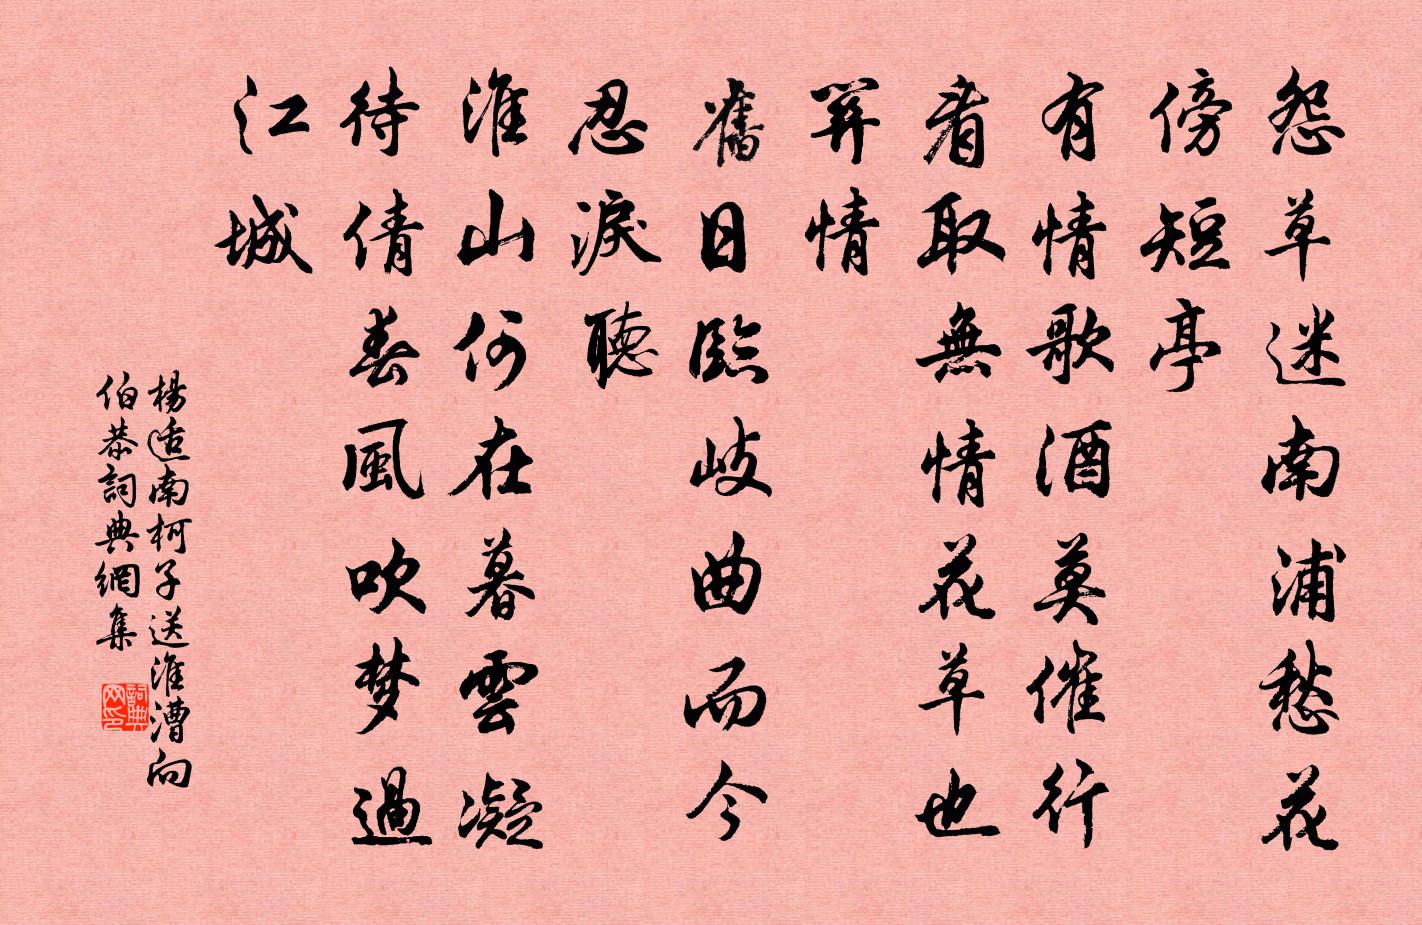 怨草迷南浦愁花
傍短亭
有情歌酒莫催行
看取無情花草也
關情
舊日臨岐曲而今
忍淚聽
淮山何在暮雲凝
待倩春風吹梦過
江城
楊适南柯子送淮漕向
伯恭詞典網集
詞典
网印